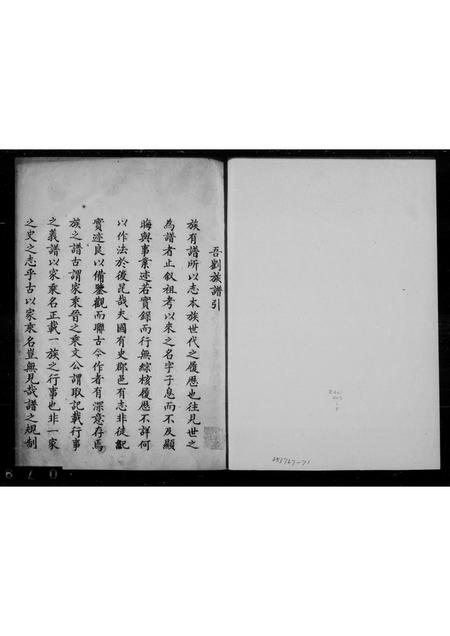 吾劉族譜引
族有譜所以志本族世代之履歷也往見世之
為譜者止叙祖考以來之名字子息而不及顯
晦與事業述若實錄而行無綜核履歷不詳何
以作法於後昆哉夫國有史郡邑有志非徒
實迹良以備鑒觀而聯古今作者有深意存焉
族之譜古謂家乘晉之乘文公謂取記載行事
之義譜以家乘名正載一族之行事也非一家
之史之志乎古以家乘名豈無見哉譜之規制
253767-71